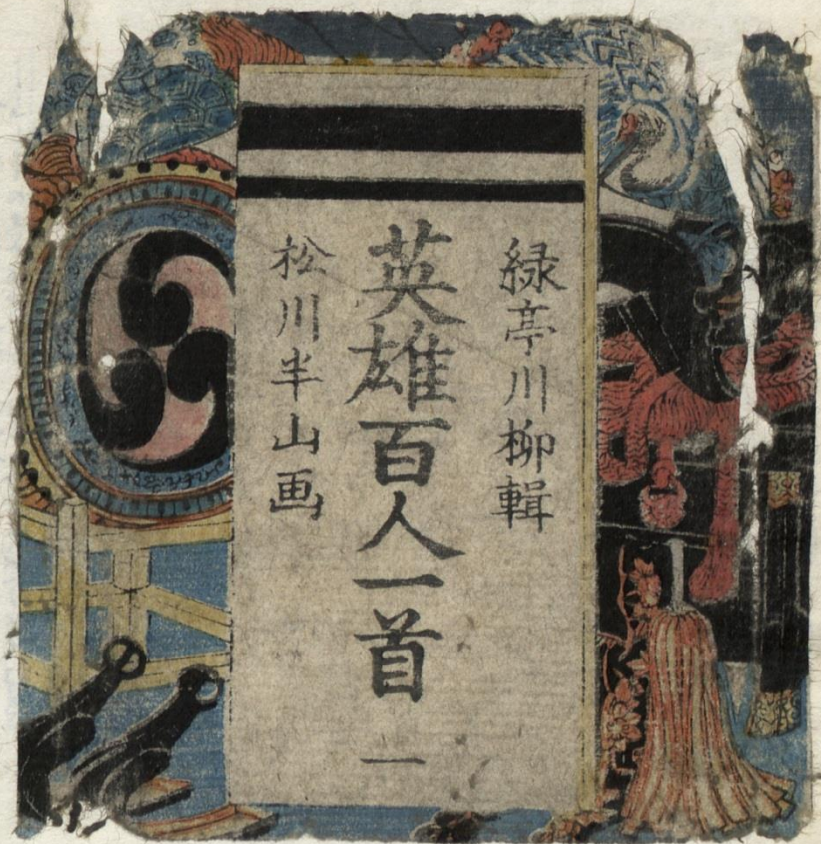 緑亭川柳輯
英雄百人一首 一
松川半山画